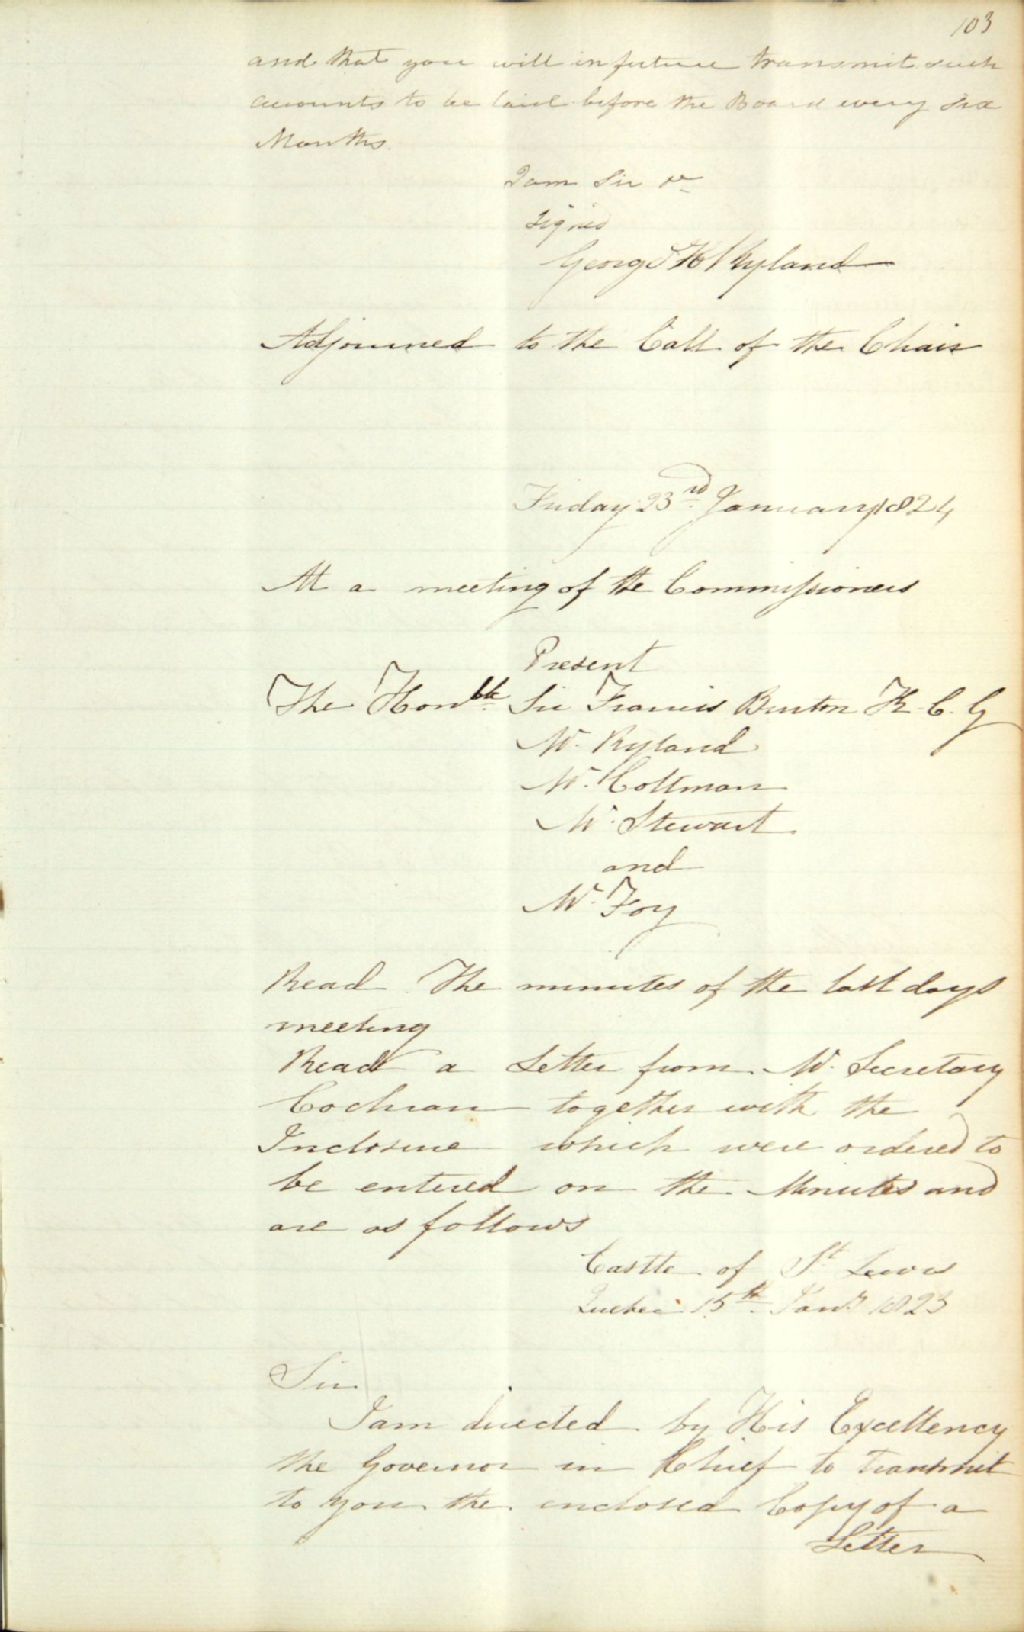 103
and that you will in future transmit such
accounts to be laid before the Board every six
Months.
I am Sir &c
Signed
George H Ryland
Adjourned to the Call of the Chair
Friday 23rd January 1824
At a meeting of the Commissioners
Present
The Honble Sir Francis Burton K. C. G
Mr. Ryland
Mr. Coltman
Mr. Stewart
and
Mr. Foy
Read The minutes of the last days
meeting
Read a Letter from Mr. Secretary
Cochran together with the
Inclosure which were ordered to
be entered on the Minutes and
are as follows
Castle of St Lewis
Quebec 15th Jany 1823
Sir
I am directed by His Excellency
the Governor in Chief to transmit
to you the enclosed Copy of a
Letter